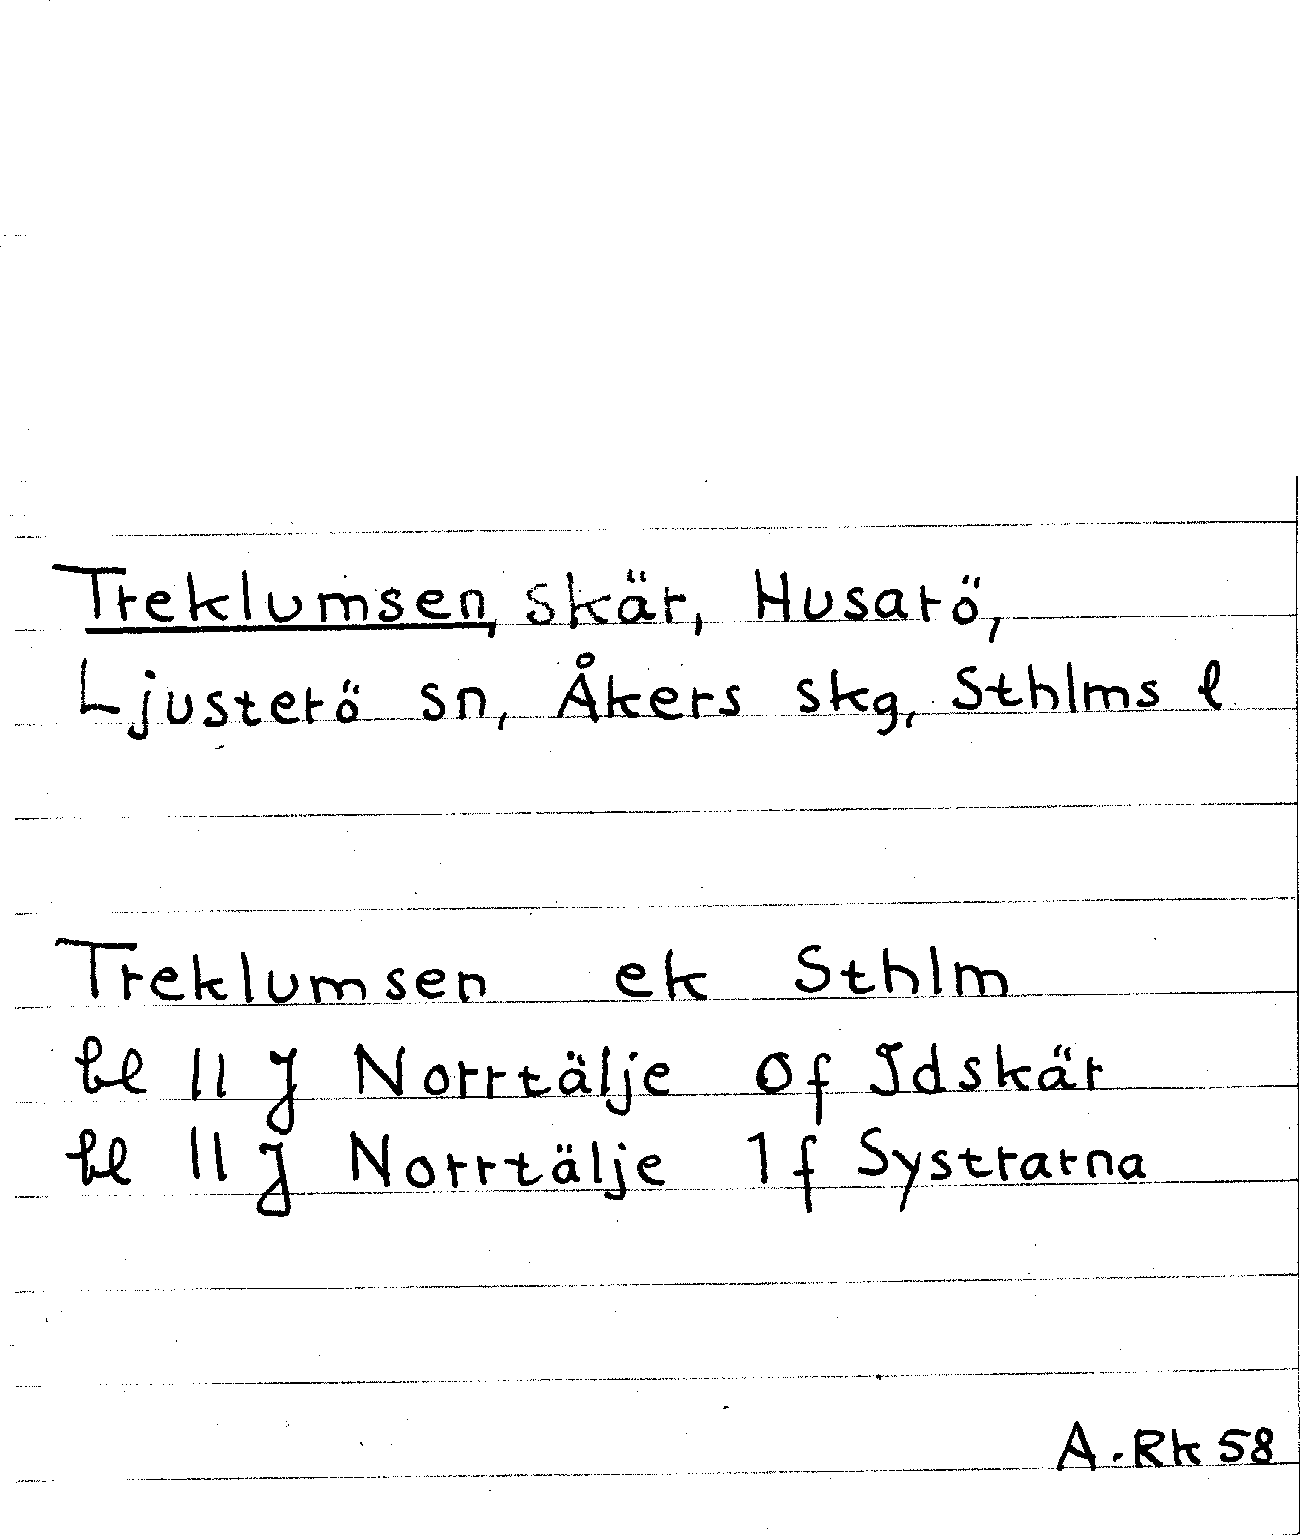 Treklumsen, skär, Husarö,
Ljusterö sn, Åkers skg, Sthlms l
Treklumsen ek Sthlm
bl 11 J Norrtälje 0f Idskär
bl 11 J Norrtälje 1f Systrarna
A.Rk 58